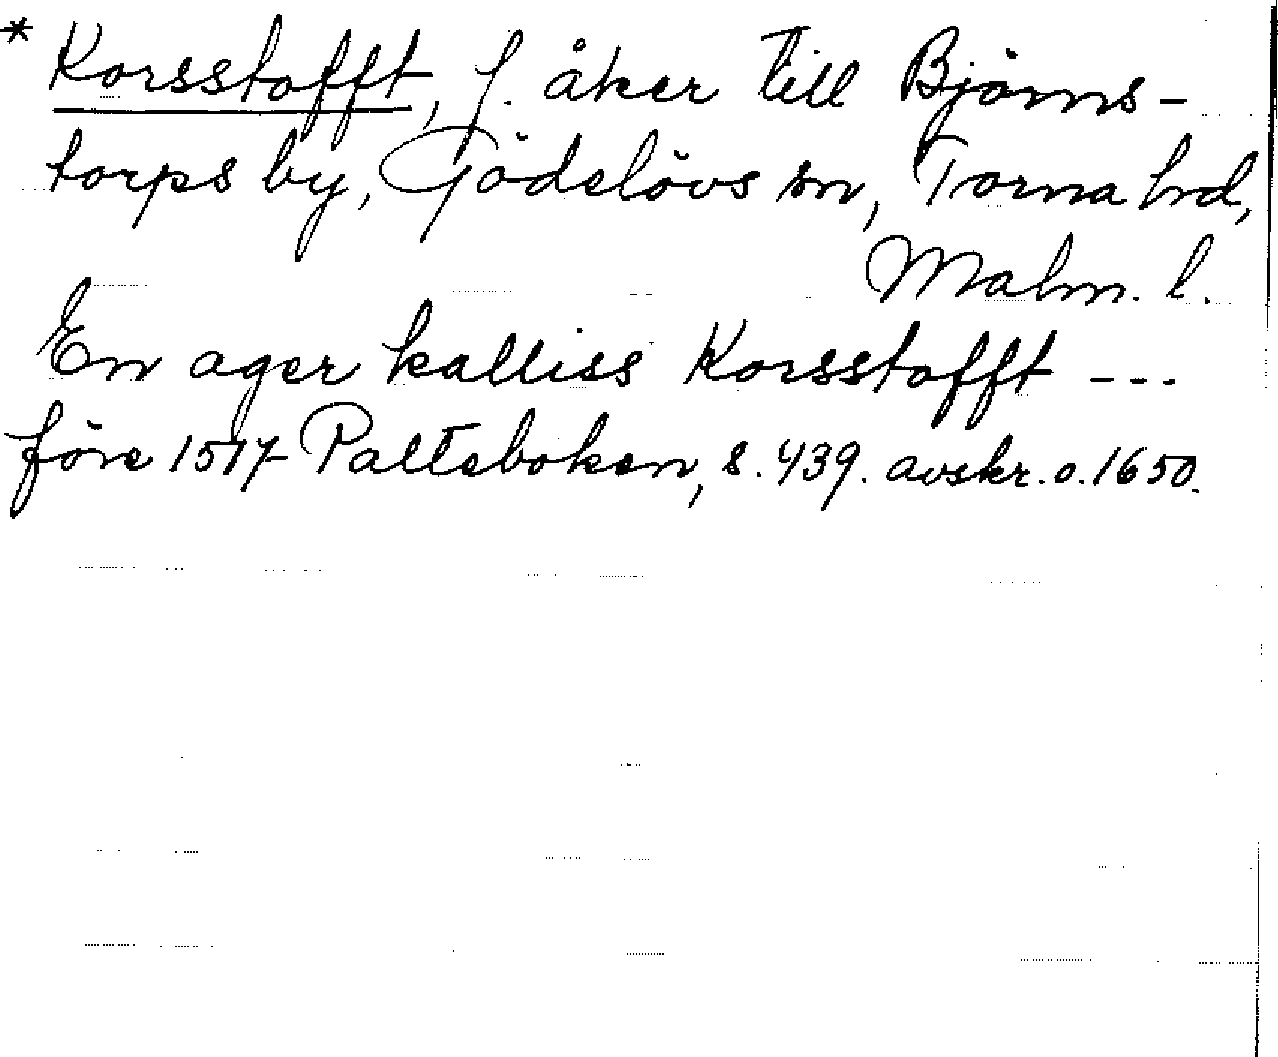 * Korsstofft, f. åker till Björns-
torps by, Gödelövs sn, Torna hrd,
Malm. l.
En ager kalliss Korsstofft ---
före 1517 Palteboken, s. 439. avskr. o. 1650.